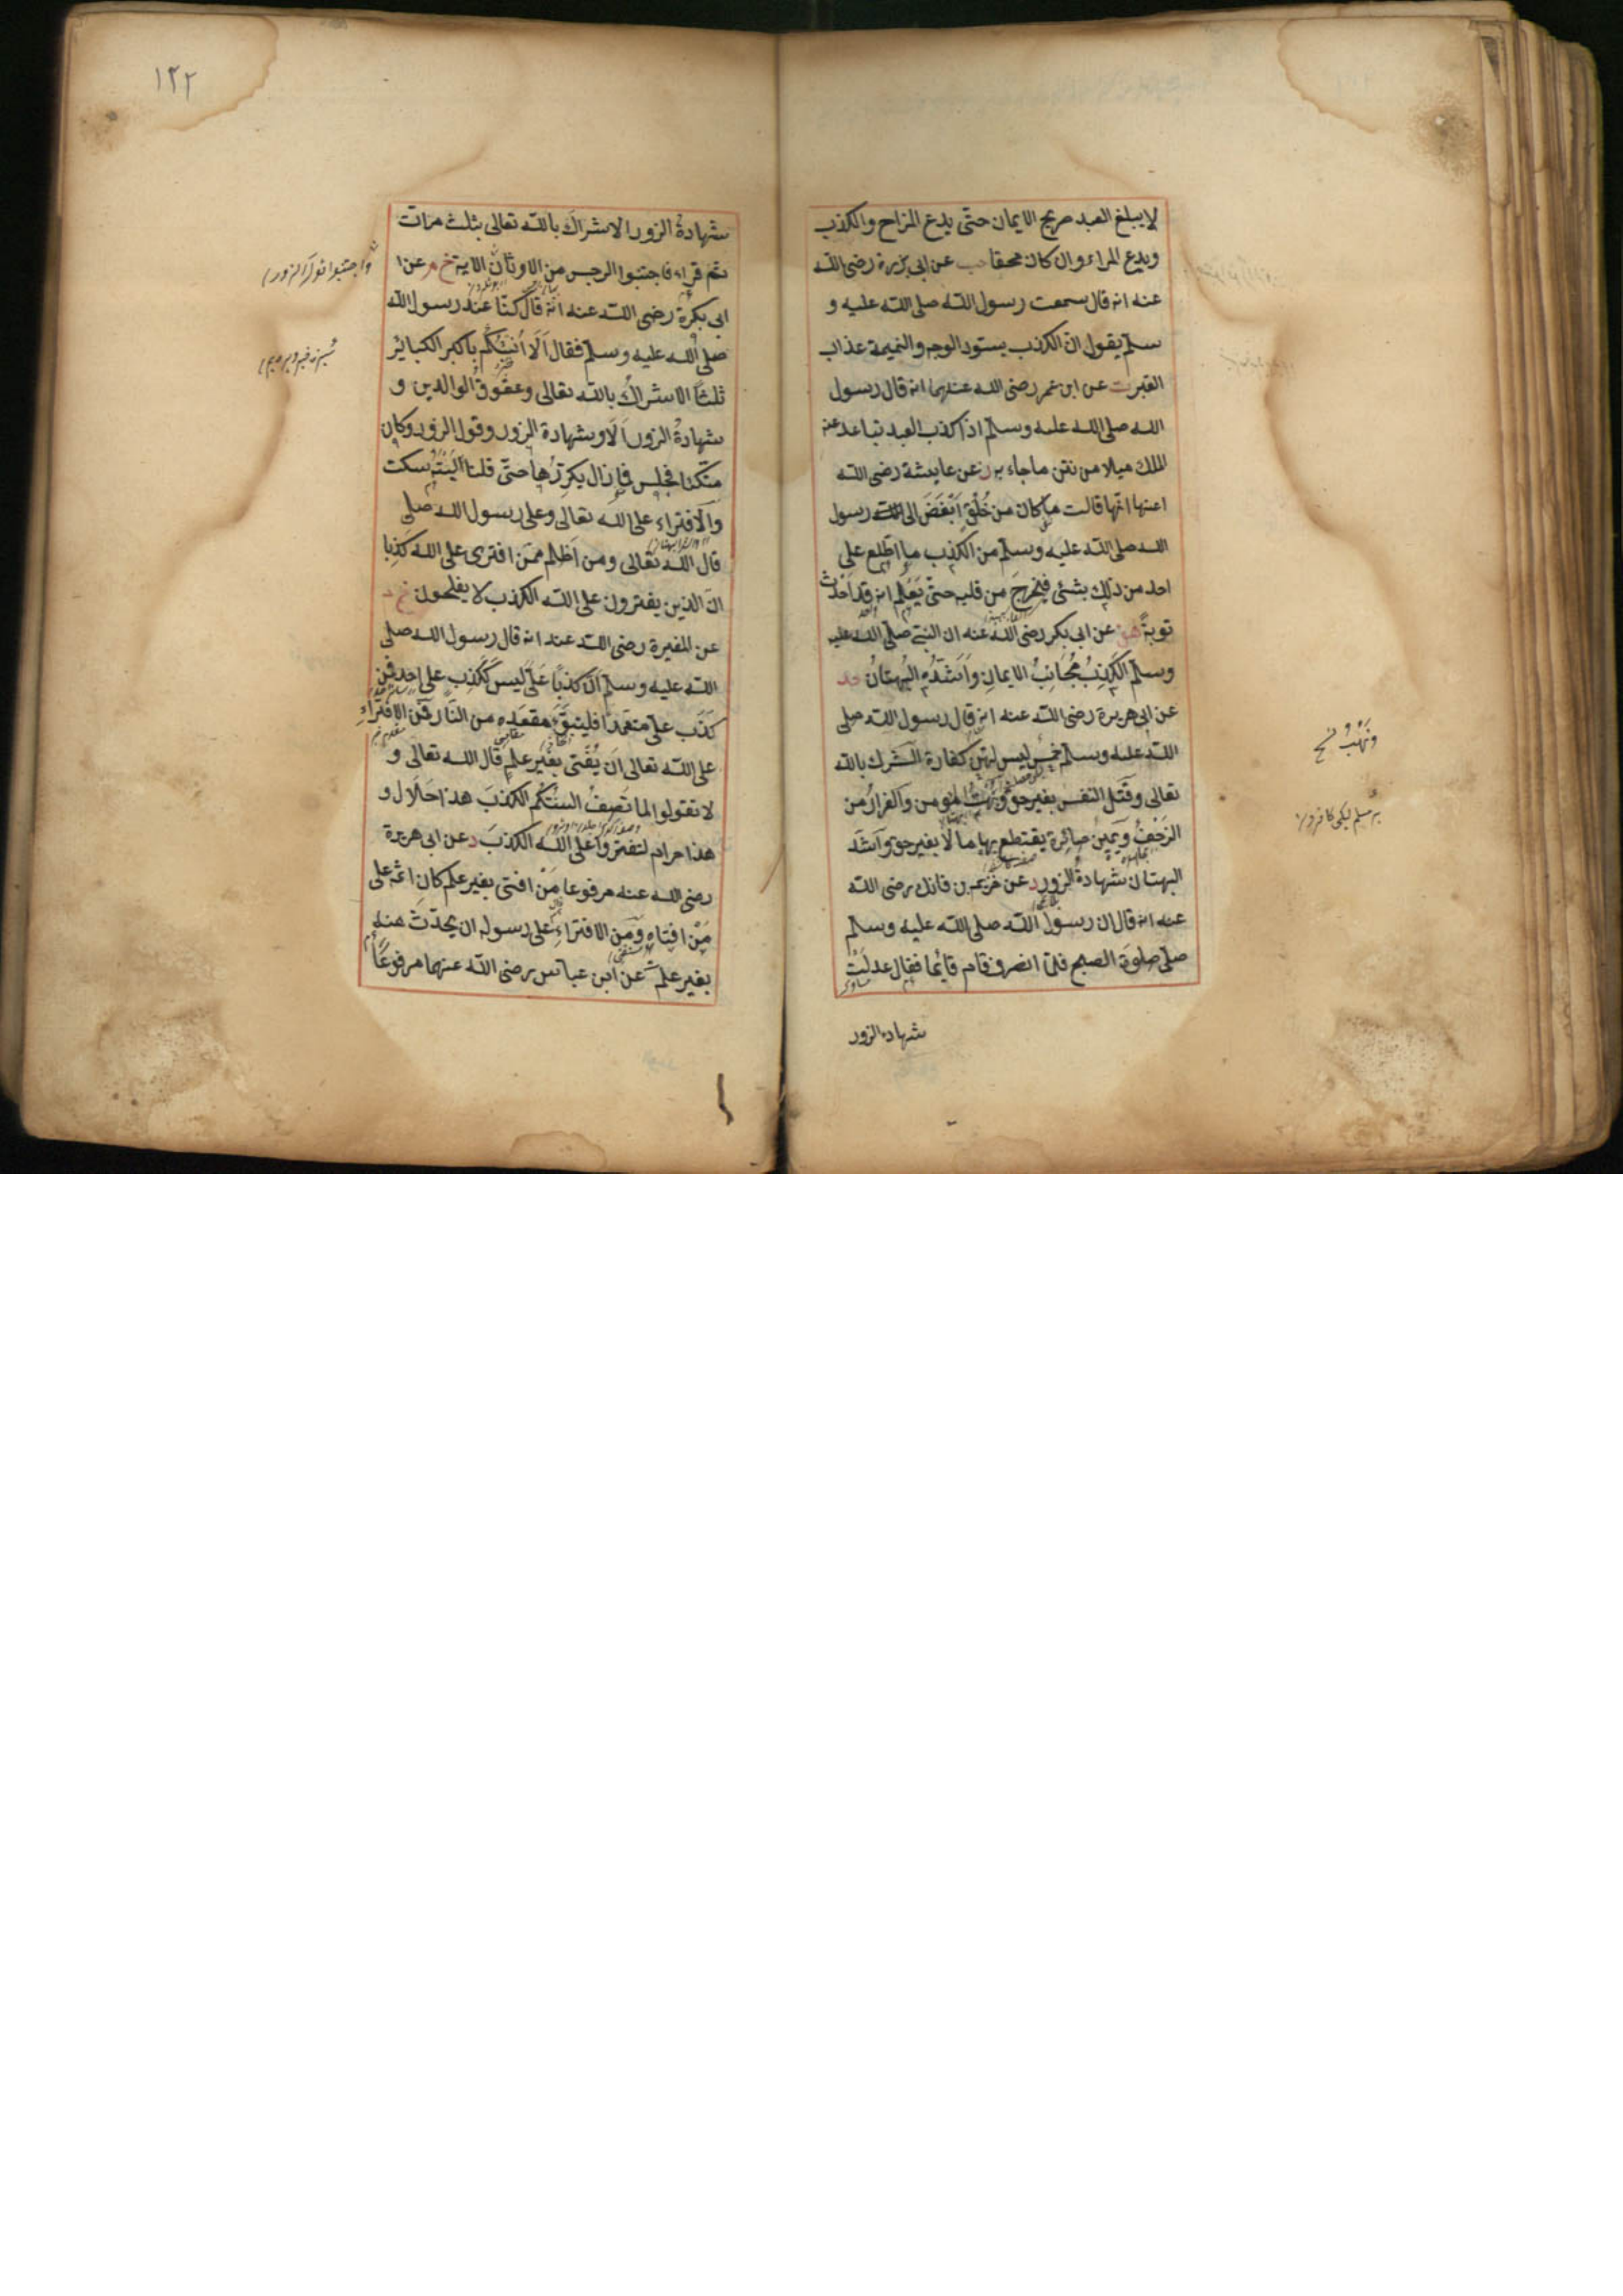 لا يبلغ العبد صريح الايمان حتّى يدع المزاح والكذب
ويدع المراء وان كان محقا حب عن ابى برزة رضى الله
عنه انه قال سمعت رسول الله صلى الله عليه و
سلم يقول ان الكذب يسود الوجه والنميمة عذاب
القبر ت عن ابن عمر رضى الله عنهما انه قال رسول
الله صلى الله عليه وسلم اذا كذب العبد تباعد عنه
الملك ميلا من نتن ما جاء به ز عن عايشة رضى الله
عنها انّها قالت ما كان من خُلُقٍ اَبْغَضَ الى رسول
الله صلى الله عليه وسلم من الكذب ما اطّلع على
احد من ذلك بشئى فيخرجَ من قلبه حتّى يَعْلم انه قد اَحْدَثَ
توبةً عن ابى بكر رضى الله عنه ان النبى صلّى الله عليه
وسلم الكَذِبُ مُجَانِبُ الايمانِ وَاَشَدُّه البُهتانُ حد
عن ابى هريرة رضى الله عنه انه قال رسول الله صلى
الله عليه وسلم خمس ليس لهنّ كفارة الشرك بالله
تعالى وقَتل النفس بغير حق وبُهْتُ المؤمن والفرارُ من
الزَحْفُ ويَمِينٌ صائرة يقتطع بها مالا بغير حق واَشَدّ
البهتان شهادةُ الزور د عن خريم بن فاتك رضى الله
عنه انه قال ان رسول الله صلى الله عليه وسلم
صلّى صلوة الصبح فلمّا انصرف قام قائما فقال عدلَتْ
شهادة الزور
ونَهْبُ نسخ
١٢٢
شهادةُ الزور الاشراكَ بالله تعالى بثلث مرات
ثم قراء فاجتنبوا الرجس من الاوثان الاية خ م عن
ابى بكرة رضى الله عنه انّه قال كنّا عند رسول الله
صلى الله عليه وسلم فقال اَلَا اُنَبِّئُكُم باكبر الكبائر
ثلثاً الاشراكُ بالله تعالى وعقوقُ الوالدين و
شهادةُ الزور اَلَا وشهادة الزور وقول الزور وكان
متّكئا فجلس فما زال يكرّرُها حتّى قلنا لَيْتَه سكت
والافتراء على الله تعالى وعلى رسول الله صلى
قال الله تعالى ومن اَظْلم ممّن افترى على الله كذِبا
انّ الذين يفترون على الله الكذب لا يفلحون خ
عن المغيرة رضى الله عنه انه قال رسول الله صلى
الله عليه وسلم انّ كذباً عَلَىّ ليس ككَذِبٍ على احد فمن
كَذَبَ علىّ متعمّدا فليتبوَّء مقعدَه من النار فمن الافتراءِ
على الله تعالى اَن يُفْتى بغير علمٍ قال الله تعالى و
لا تقولوا لما تَصِفُ السنتُكُم الكذبَ هذا حَلَال و
هذا حرام لتفتروا على الله الكذبَ د عن ابى هريرة
رضى الله عنه مرفوعا مَنْ افتى بغير علم كان اثمه على
مَنْ افتاه ومن الافتراءِ على رسوله ان يحدّث عنه
بغير علم ت عن ابن عباس رضى الله عنهما مرفوعاً
واجتنبوا قول الزور